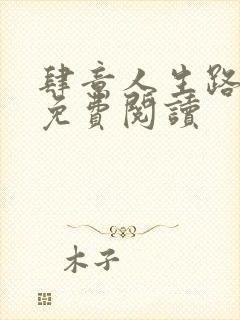 肆意人生路
免費閱讀
木子